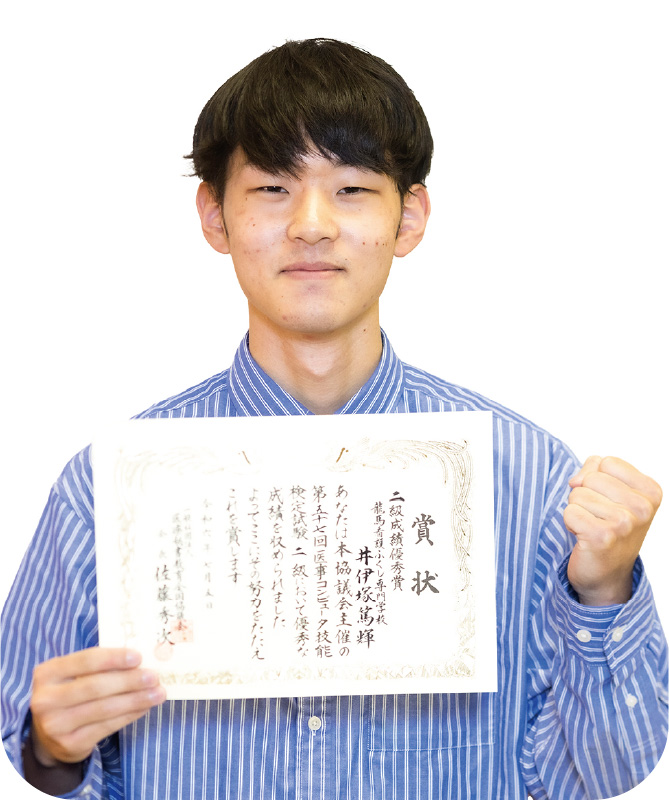 賞状
二級成績優秀賞
龍馬看護ふくし専門学校
井伊塚篤輝
あなたは本協議会主催の
第五十七回医事コンピュータ技能
検定試験 二級において優秀な
成績を収められました
よってここにその努力をたたえ
これを賞します
佐藤秀次